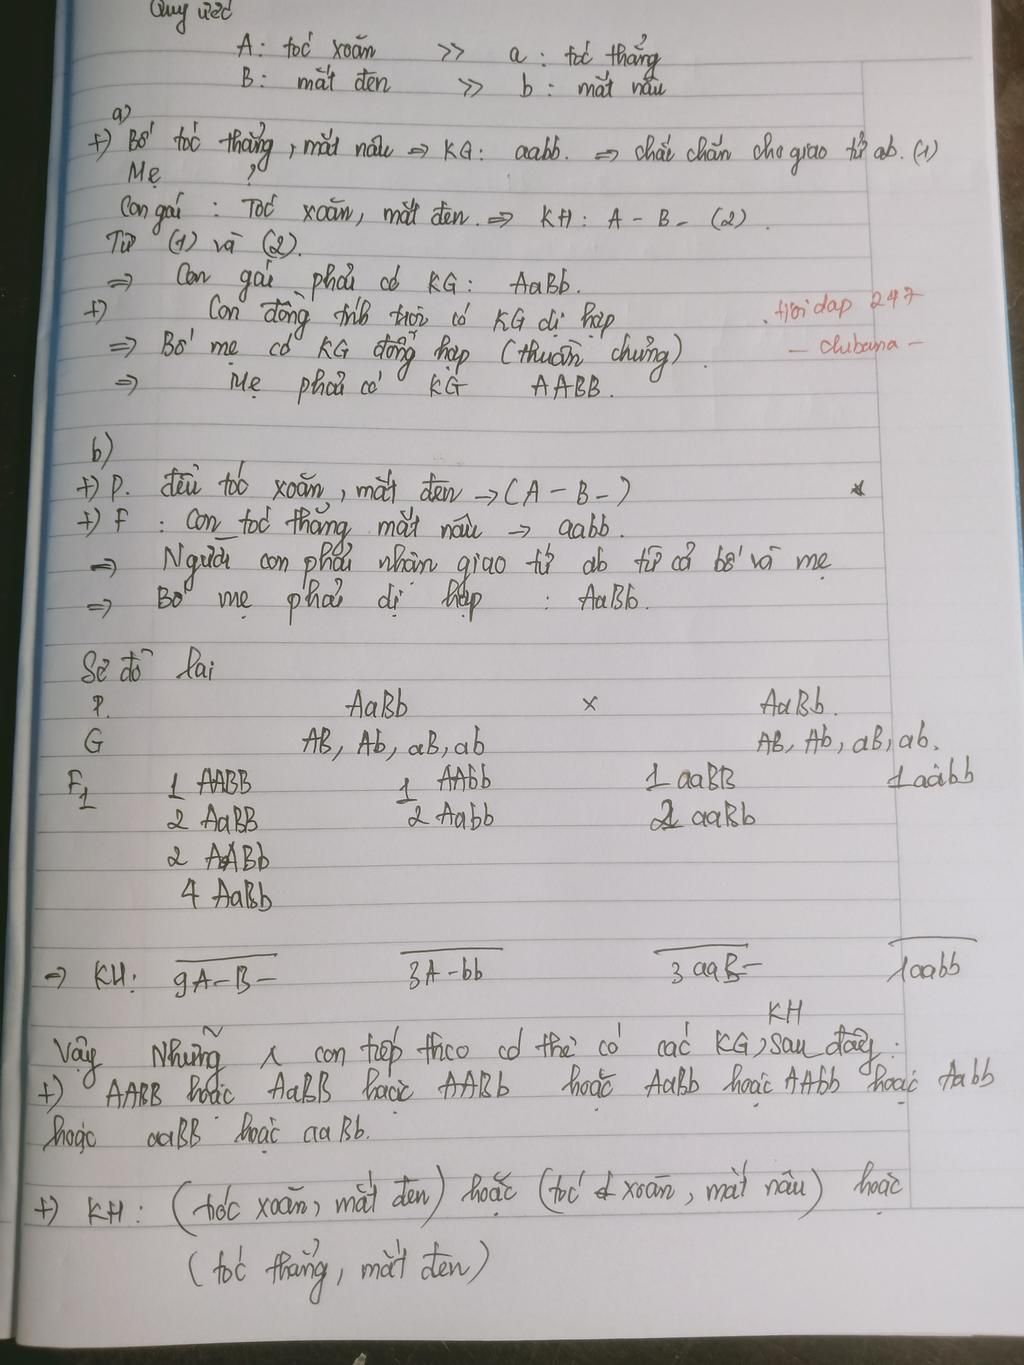 Quy ước
A: tóc xoăn >> a: tóc thẳng
B: mắt đen >> b: mắt nâu
a)
+) Bố tóc thẳng, mắt nâu => KG: aabb. => chắc chắn cho giao tử ab. (1)
Mẹ ?
Con gái: Tóc xoăn, mắt đen. => KH: A-B- (2).
Từ (1) và (2).
=> Con gái phải có KG: AaBb.
+) Con đồng tính trội có KG dị hợp
. Hỏi dap 247
=> Bố mẹ có KG đồng hợp (thuần chủng).
- chibana -
=> Mẹ phải có KG AABB.
b)
+) P. đều tóc xoăn, mắt đen → (A-B-)
+) F: Con tóc thẳng mắt nâu → aabb.
=> Người con phải nhận giao tử ab từ cả bố và mẹ
=> Bố mẹ phải dị hợp : AaBb.
Sơ đồ lai
P. AaBb x AaBb.
G AB, Ab, aB, ab AB, Ab, aB, ab.
F1 1 AABB 1 AAbb 1 aaBB 1 aabb
2 AaBB 2 Aabb 2 aaBb
2 AABb
4 AaBb
=> KH: 9A-B- 3A-bb 3aaB- 1aabb
KH
Vậy Những con tiếp theo có thể có các KG, sau đây:
+) AABB hoặc AaBB hoặc AABb hoặc AaBb hoặc AAbb hoặc Aabb
hoặc aaBB hoặc aaBb.
+) KH: (tóc xoăn, mắt đen) hoặc (tóc xoăn, mắt nâu) hoặc
(tóc thẳng, mắt đen)